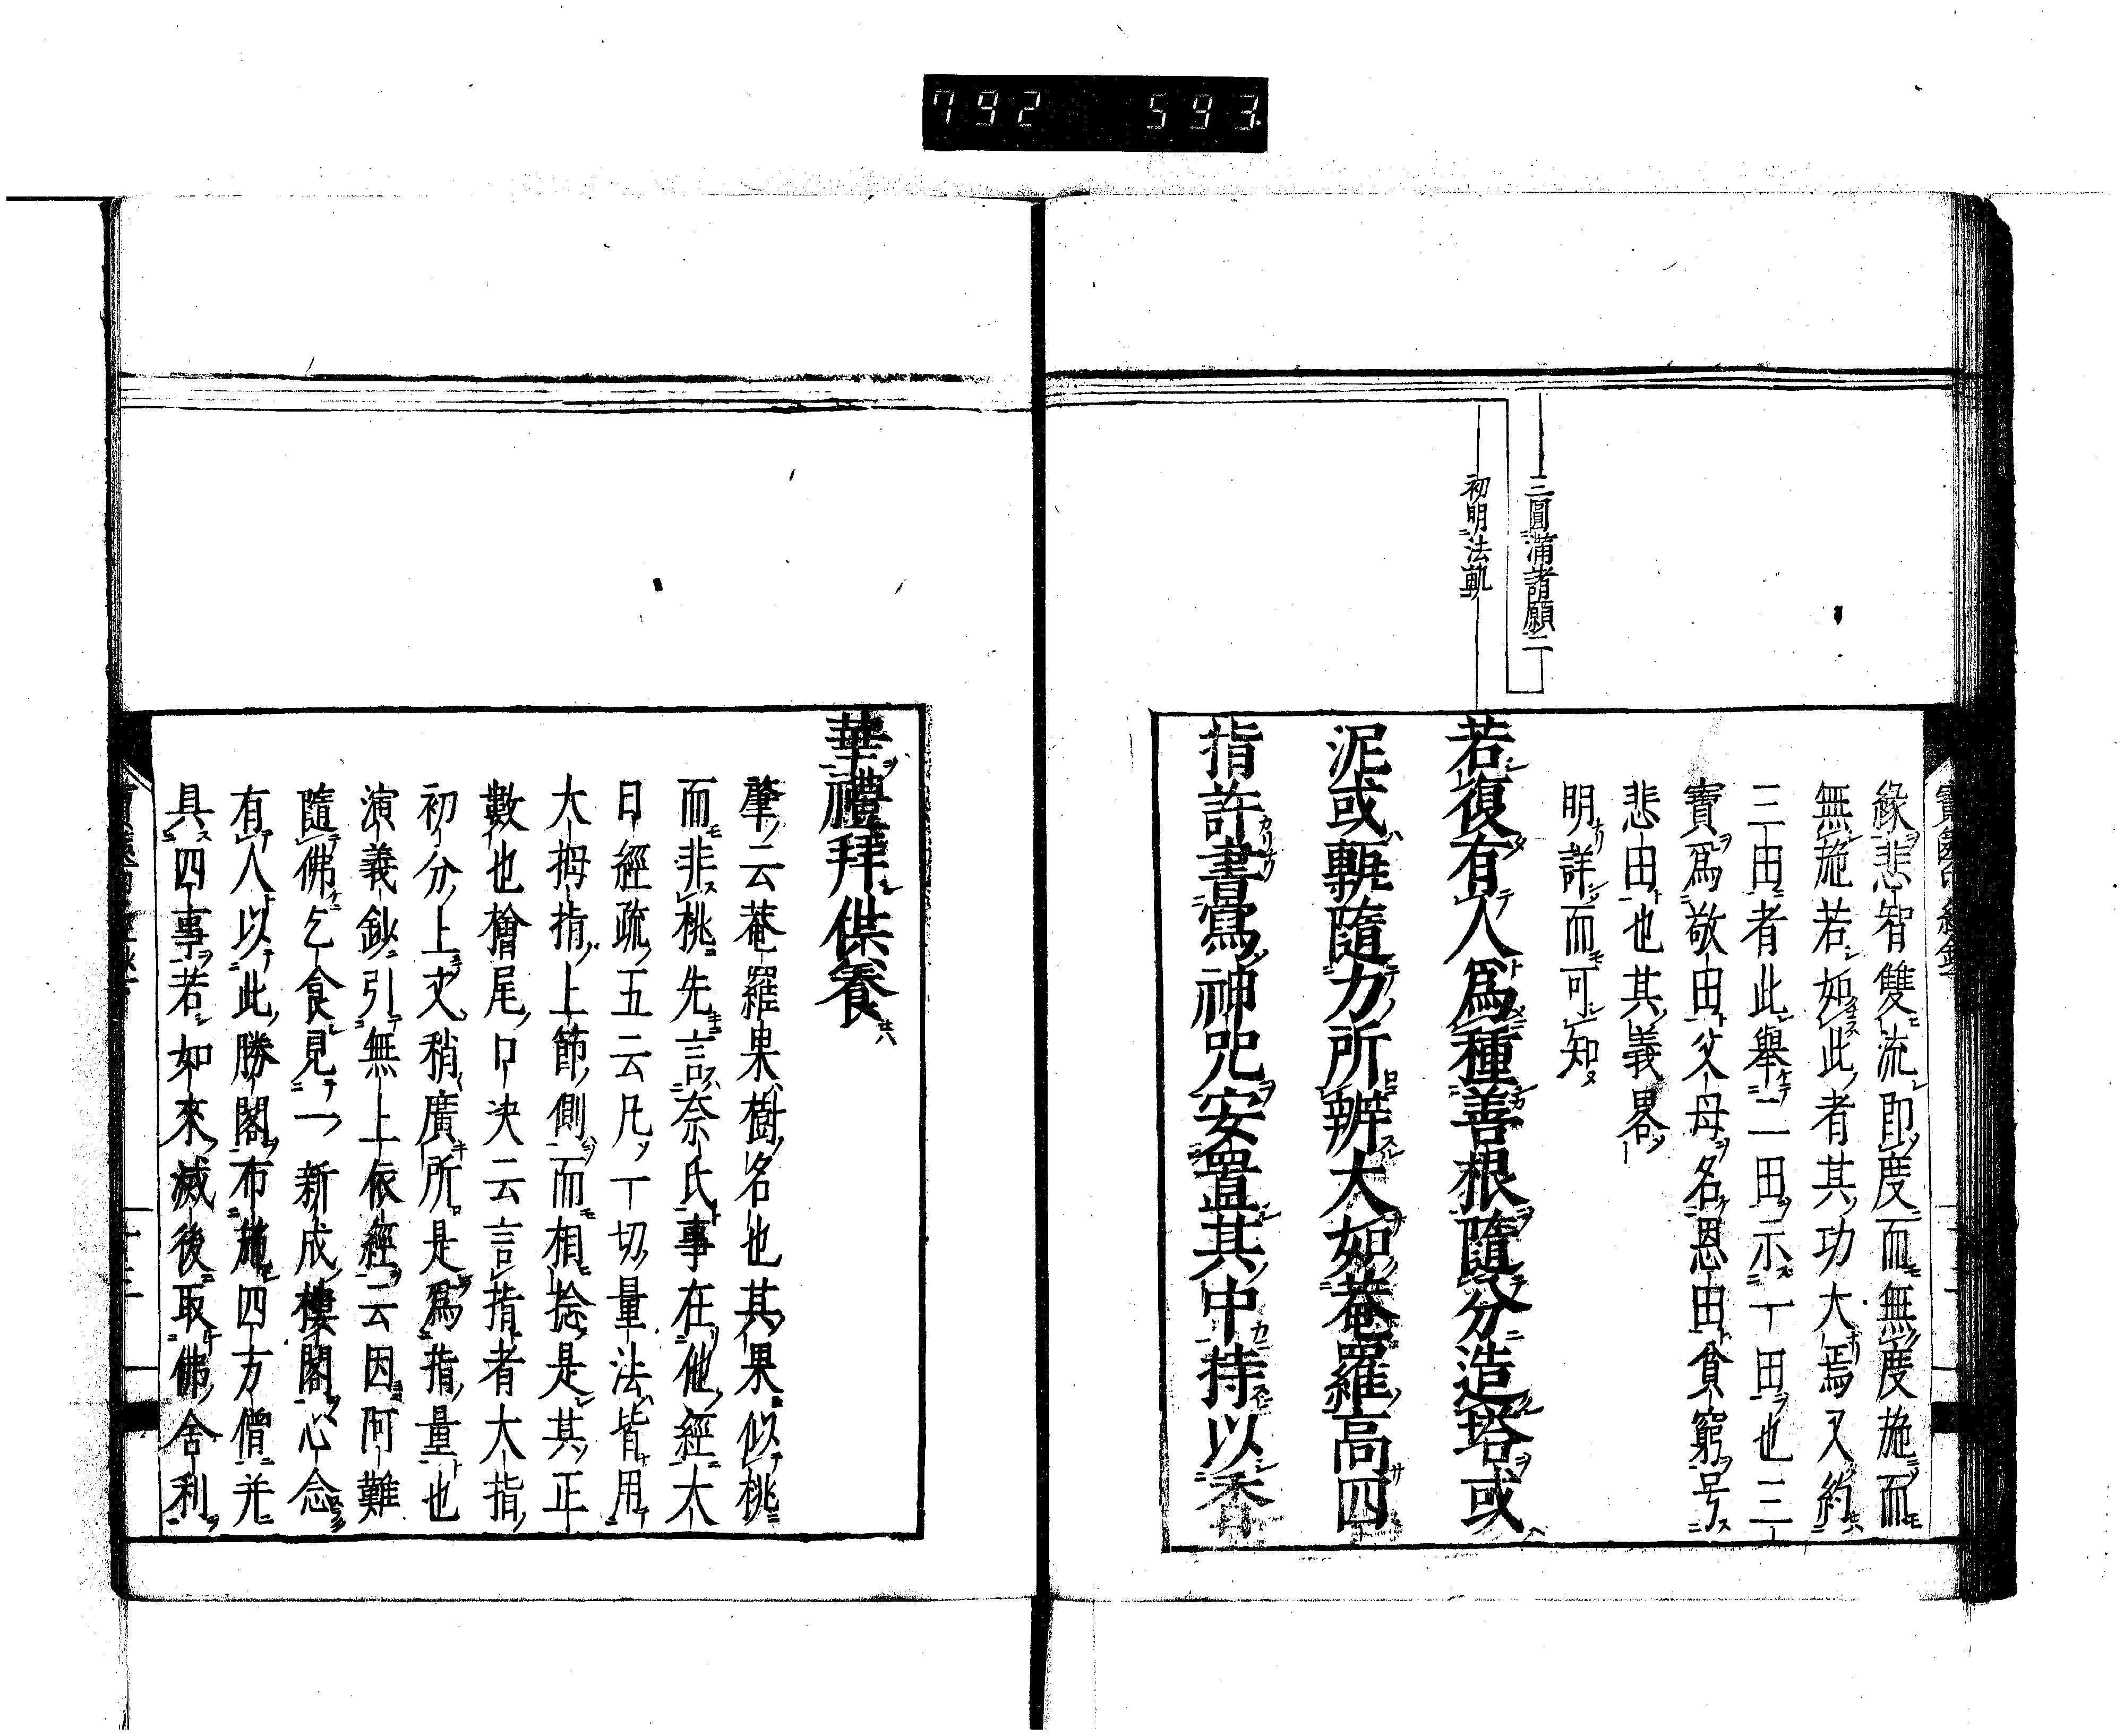 792 593
三圓滿諸願二
初明法軌
緣悲智雙流即度而無度施而
無施若如此者其功大焉又約
三田者此舉二田示一田也三
寶爲敬田父母名恩田貧窮号
悲田也其義畧
明詳而可知
若復有人爲種善根隨分造塔或
泥或甎隨力所辨大如菴羅高四
指許書寫神咒安置其中持以香
華禮拜供養
肇云菴羅果樹名也其果似桃
而非桃先言奈氏事在他經大
日經疏五云凡一切量法皆用
大拇指上節側而相捻是其正
數也檜尾口决云言指者大指
初分上文稍廣所是爲指量也
演義鈔引無上依經云因阿難
隨佛乞食見一新成樓閣心念
有人以此勝閣布施四方僧并
具四事若如來滅後取佛舍利